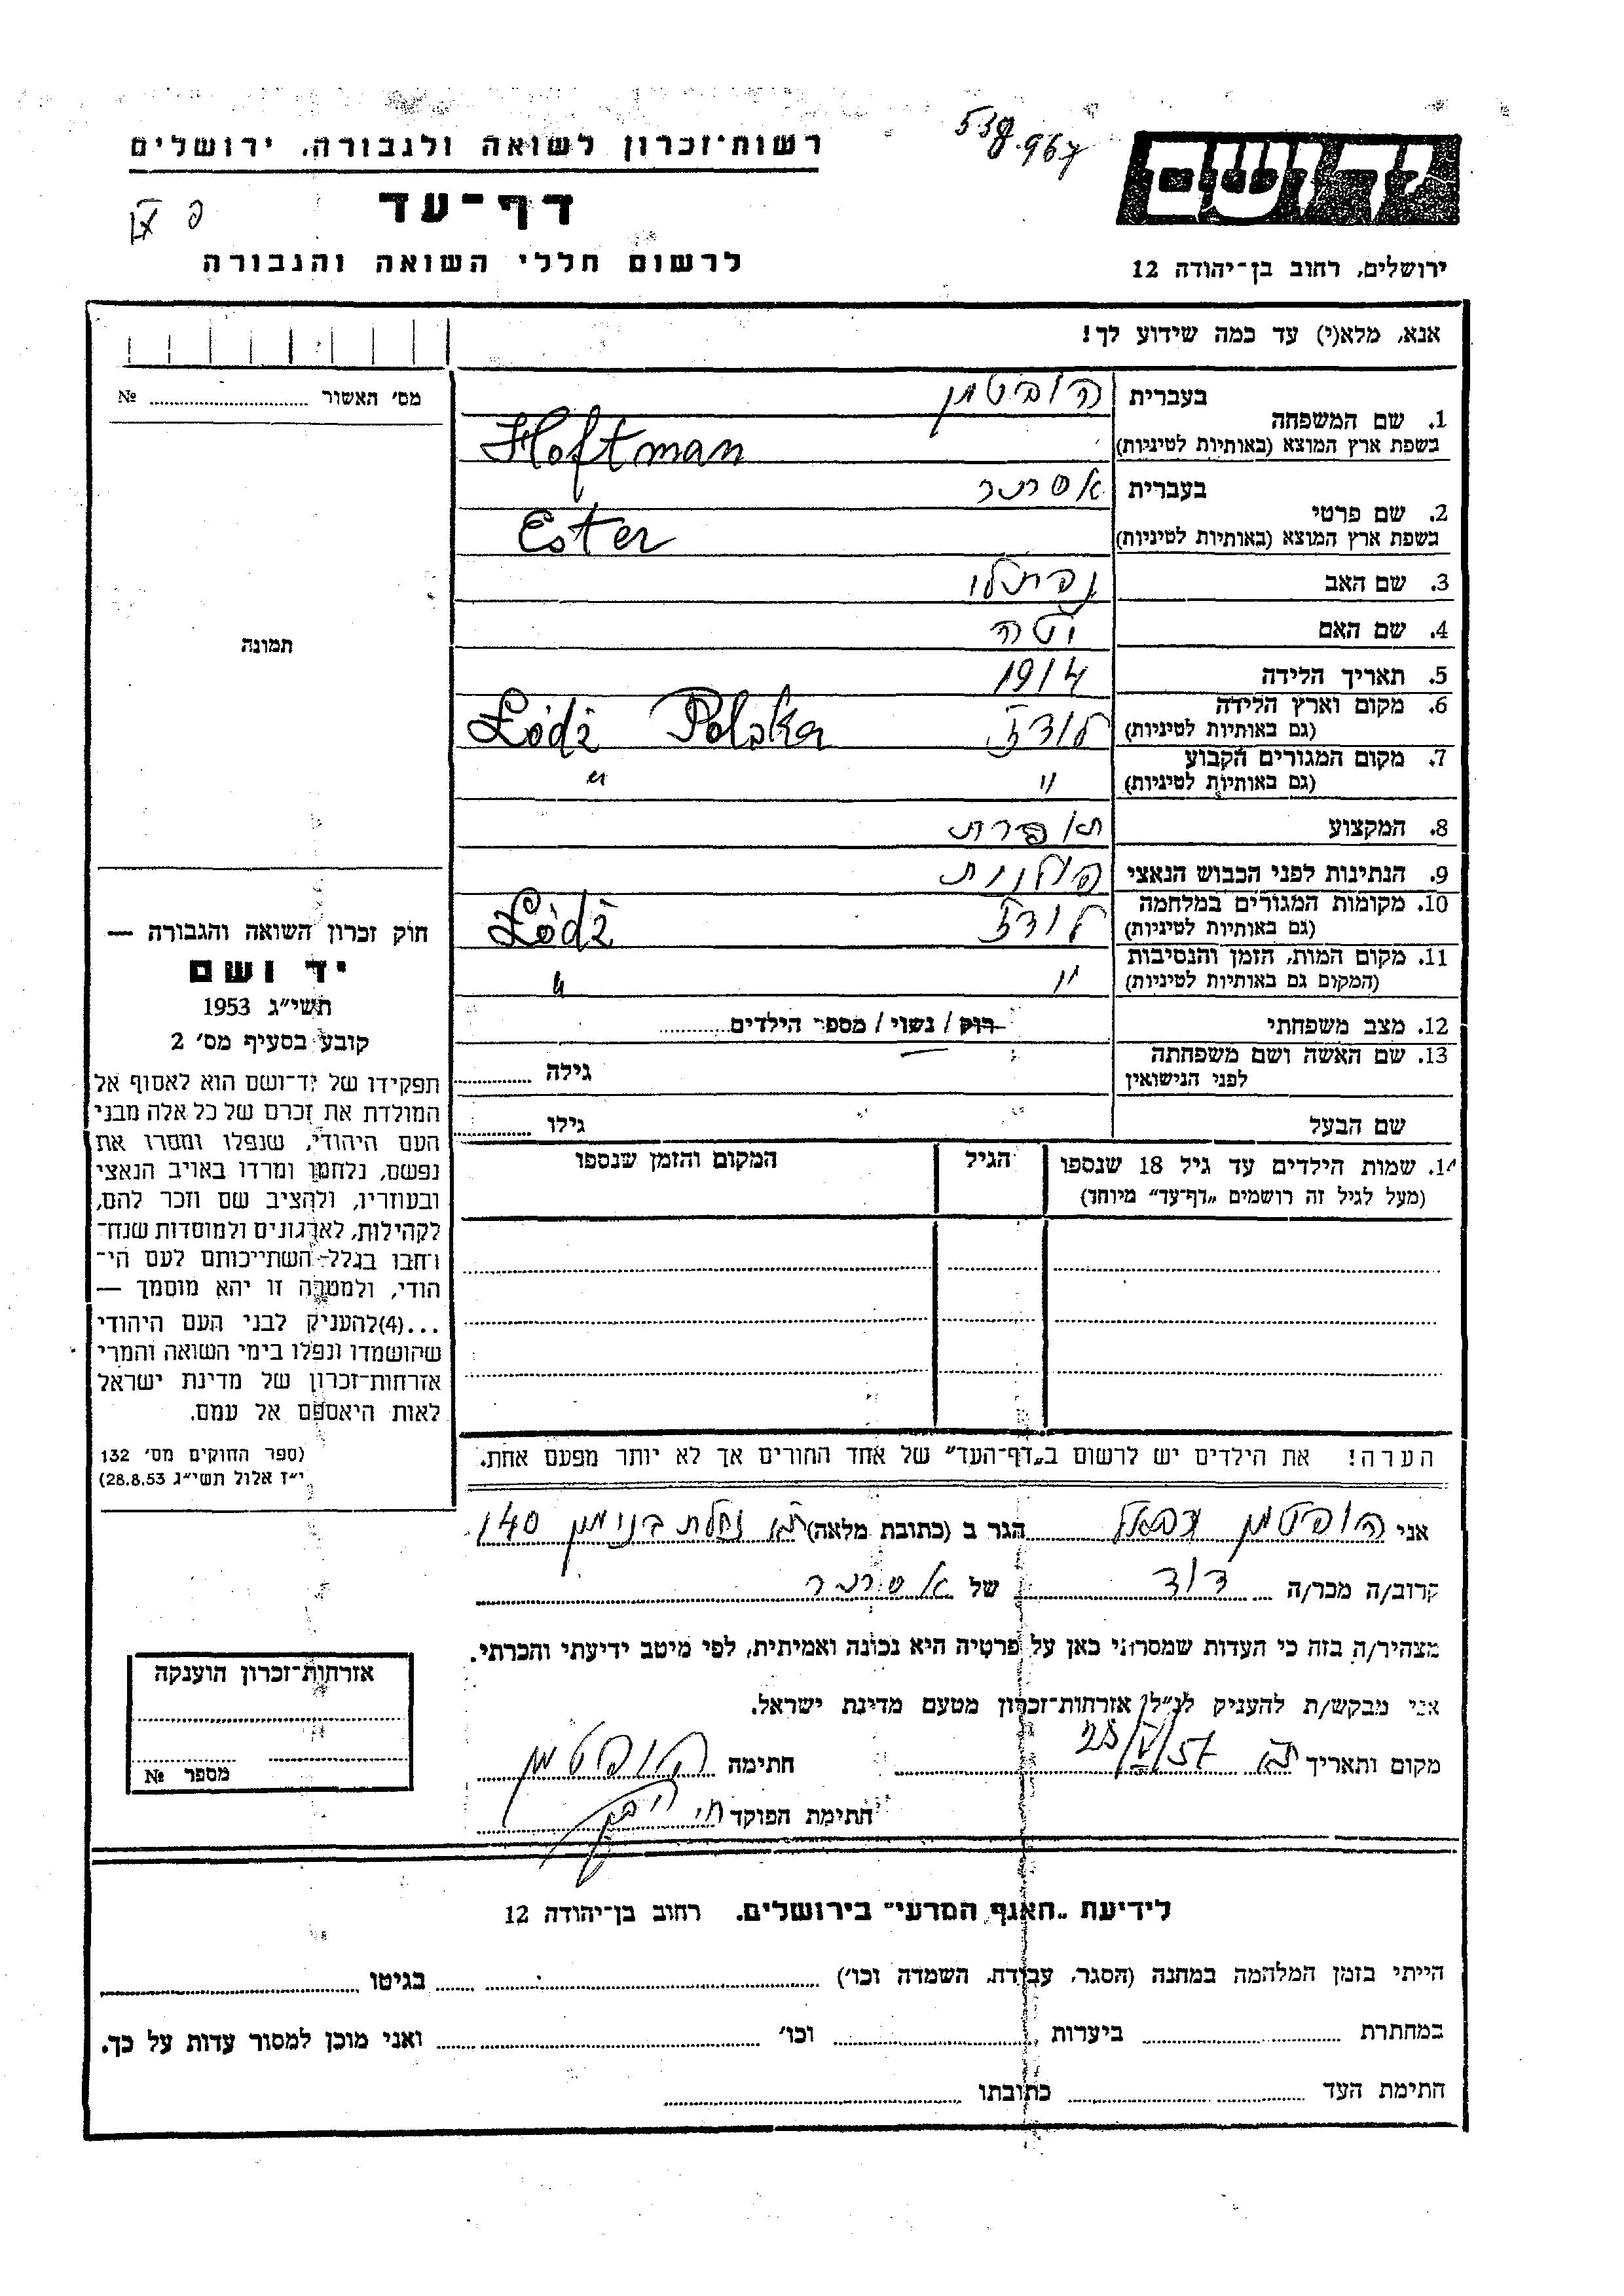 רשות־זכרון לשואה ולגבורה, ירושלים
דף־עד
לרשום חללי השואה והגבורה
פ IX
538.967
יד ושם
ירושלים, רחוב בן־יהודה 12
אנא, מלא(י) עד כמה שידוע לך!
מס׳ האשור № 
תמונה
1. שם המשפחה
בעברית הופטמן
בשפת ארץ המוצא (באותיות לטיניות) Hoftman
2. שם פרטי
בעברית אסתר
בשפת ארץ המוצא (באותיות לטיניות) Ester
3. שם האב נפתלי
4. שם האם יטה
5. תאריך הלידה 1914
6. מקום וארץ הלידה (גם באותיות לטיניות) לודז Łódź Polska
7. מקום המגורים הקבוע (גם באותיות לטיניות) " "
8. המקצוע תופרת
9. הנתינות לפני הכבוש הנאצי פולנית
10. מקומות המגורים במלחמה (גם באותיות לטיניות) לודז Łódź
11. מקום המות, הזמן והנסיבות (המקום גם באותיות לטיניות) " "
12. מצב משפחתי רוק / נשוי / מספר הילדים
13. שם האשה ושם משפחתה לפני הנישואין — גילה
שם הבעל גילו
14. שמות הילדים עד גיל 18 שנספו
(מעל לגיל זה רושמים „דף־עד” מיוחד)
הגיל
המקום והזמן שנספו
חוק זכרון השואה והגבורה —
יד ושם
תשי״ג 1953
קובע בסעיף מס׳ 2
תפקידו של יד־ושם הוא לאסוף אל
המולדת את זכרם של כל אלה מבני
העם היהודי, שנפלו ומסרו את
נפשם, נלחמו ומרדו באויב הנאצי
ובעוזריו, ולהציב שם וזכר להם,
לקהילות, לארגונים ולמוסדות שנח־
רחבו בגלל השתייכותם לעם הי־
הודי, ולמטרה זו יהא מוסמך —
...(4)להעניק לבני העם היהודי
שהושמדו ונפלו בימי השואה והמרי
אזרחות־זכרון של מדינת ישראל
לאות היאספם אל עמם.
(ספר החוקים מס׳ 132
י״ז אלול תשי״ג 28.8.53)
הערה! את הילדים יש לרשום ב„דף־העד” של אחד ההורים אך לא יותר מפעם אחת.
אני הופטמן הגר ב (כתובת מלאה) ת״א נחלת בנימין 140
קרוב/ה מכר/ה דוד של אסתר
מצהיר/ה בזה כי העדות שמסרתי כאן על פרטיה היא נכונה ואמיתית, לפי מיטב ידיעתי והכרתי.
אני מבקש/ת להעניק לנ״ל אזרחות־זכרון מטעם מדינת ישראל.
מקום ותאריך ת״א 25/V/57 חתימה הופטמן
חתימת הפוקד
אזרחות־זכרון הוענקה
מספר №
לידיעת „האגף המדעי״ בירושלים. רחוב בן־יהודה 12
הייתי בזמן המלחמה במחנה (הסגר, עבודה, השמדה וכו׳) בגיטו
במחתרת ביערות וכו׳ ואני מוכן למסור עדות על כך.
חתימת העד כתובתו